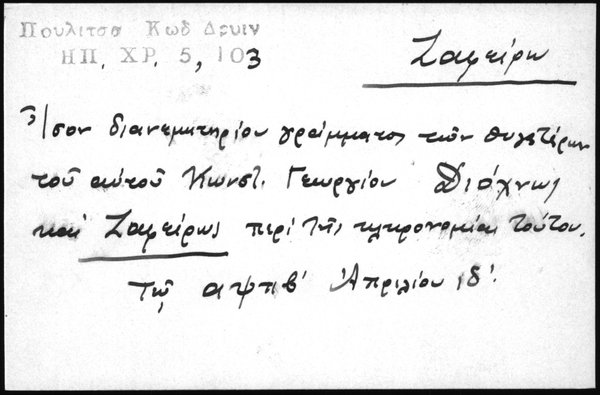 Πουλιτσα Κωδ Δρυιν
ΗΠ. ΧΡ. 5, 103
Ζαφείρω
Ἴσον διανεμητηρίου γράμματος τῶν θυγατέρων
τοῦ αὐτοῦ Κωνστ. Γεωργίου Διάχνως
καὶ Ζαφείρως περὶ τῆς κληρονομίας τούτου.
Τῷ αψπβ' Ἀπριλίου ιδ'.